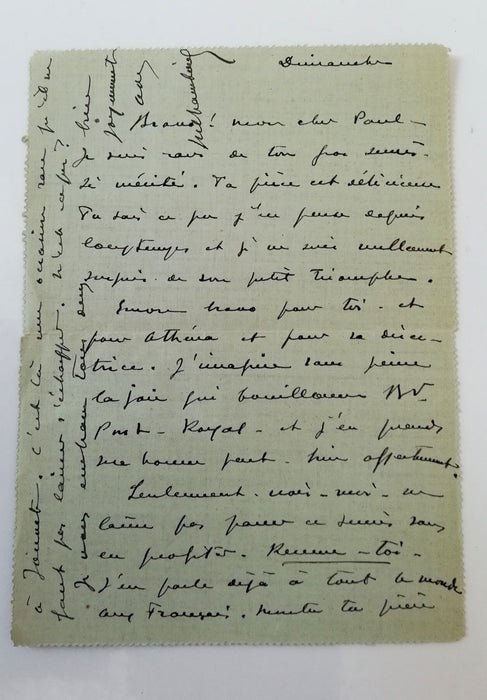 Dimanche
Bravo! mon cher Paul -
Je suis ravi de ton gros succès
si mérité. Ta pièce est délicieuse
Tu sais ce que j'en pense depuis
longtemps et je ne suis nullement
surpris de son petit triomphe.
Encore bravo pour toi - et
pour Athéna et pour sa direc-
trice. J'imagine sans peine
la joie qui bouillonne Bd
Port-Royal - et j'en prends
une bonne part - bien affectueusement.
Seulement - vois-moi - ne
laisse pas passer ce succès sans
en profiter. Remue-toi -
J'en parle déjà à tout le monde
aux Français. Montre ta pièce
à Jouvet. C'est là une occasion rare qu'il ne
faut pas laisser s'échapper. N'est-ce pas?
Je vous embrasse tous deux bien